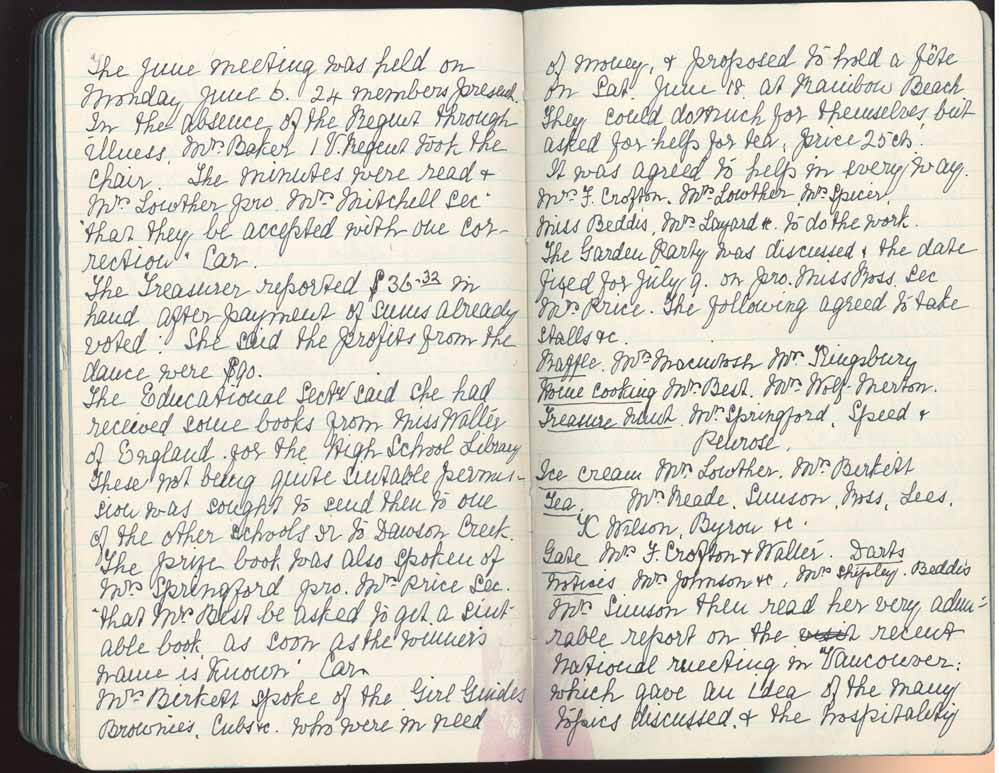 The June meeting was held on
Monday June 6. 24 members present.
In the absence of the Regent through
illness, Mrs Baker 1 V. Regent took the
chair. The minutes were read &
Mrs Lowther pro. Mrs Mitchell Sec
"that they be accepted with one cor-
rection" Car.
The Treasurer reported $36.32 in
hand after payment of sums already
voted. She said the profits from the
dance were $90.
The Educational Secty said she had
received some books from Miss Walter
of England for the High School Library
These not being quite suitable permis-
sion was sought to send them to one
of the other schools or to Dawson Creek.
The prize book was also spoken of
Mrs Springford pro. Mrs Price Sec.
"that Mrs Best be asked to get a suit-
able book as soon as the winner's
name is known" Car
Mrs Birkett spoke of the Girl Guides
Brownies, Cubs &c. who were in need
of money, & proposed to hold a fête
on Sat. June 18 at Rainbow Beach
They could do much for themselves but
asked for help for tea, price 25cts.
It was agreed to help in every way.
Mrs F. Crofton. Mrs Lowther Mrs Spicer,
Miss Beddis, Mrs Layard &c. to do the work.
The Garden Party was discussed & the date
fixed for July 9. on pro. Miss Moss. Sec
Mrs Price. The following agreed to take
stalls &c.
Raffle. Mrs Macintosh Mrs Kingsbury
Home cooking Mrs Best. Mrs Wolf-Merton.
Treasure Hunt. Mrs Springford, Speed &
Penrose.
Ice cream Mrs Lowther. Mrs Birkett
Tea, Mrs Reade, Simson, Moss, Lees,
K Wilson, Byron &c.
Gate Mrs F. Crofton & Walter. Darts
Notices Mrs Johnson &c. Mrs Shipley. Beddis
Mrs Simson then read her very admi-
rable report on the visit recent
National meeting in Vancouver.
which gave an idea of the many
topics discussed, & the hospitality